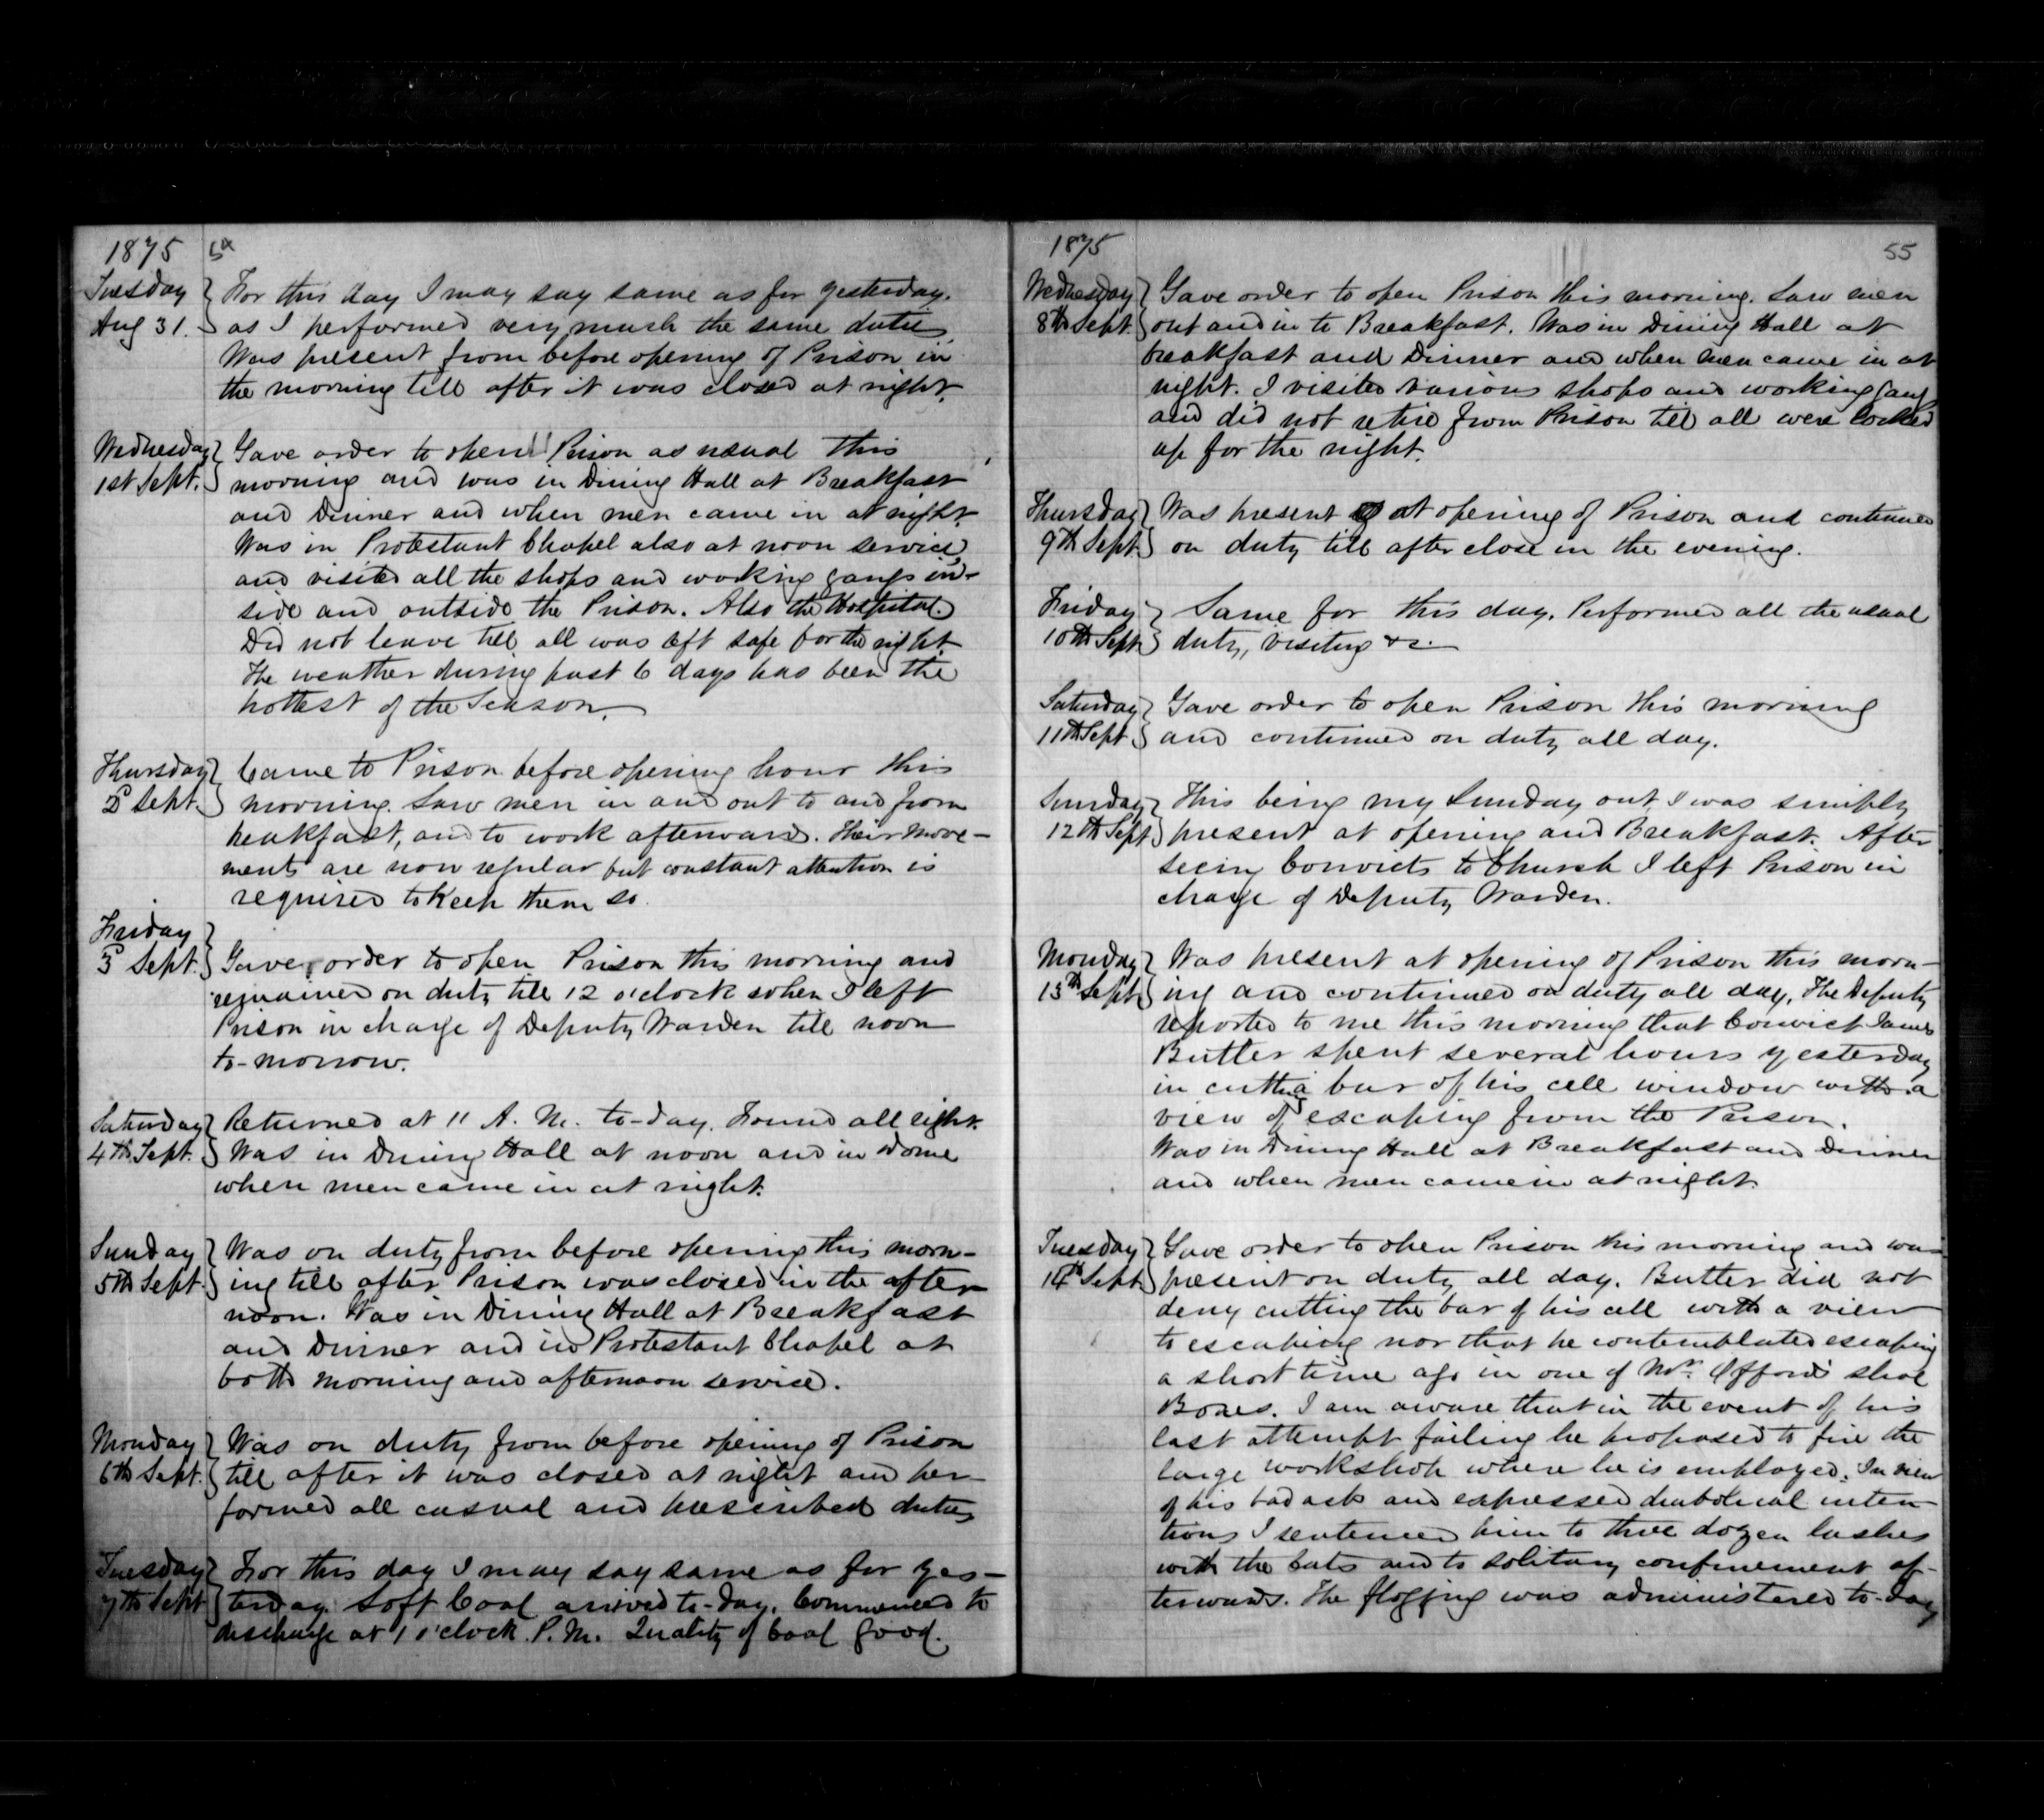 1875 54
Tuesday For this day I may say same as for yesterday.
Aug 31. as I performed very much the same duties
Was present from before opening of Prison in
the morning till after it was closed at night.
Wednesday Gave order to open Prison as usual this
1st Sept. morning and was in Dining Hall at Breakfast
and Dinner and when men came in at night.
Was in Protestant Chapel also at noon service
and visited all the shops and working gangs in-
side and outside the Prison. Also the Hospital.
Did not leave till all was left safe for the night
The weather during past 6 days has been the
hottest of the Season.
Thursday Came to Prison before opening hour this
2d Sept. morning. Saw men in and out to and from
breakfast, and to work afterwards. Their move-
ments are now regular but constant attention is
required to keep them so.
Friday
3d Sept. Gave order to open Prison this morning and
remained on duty till 12 o'clock when I left
Prison in charge of Deputy Warden till noon
to-morrow.
Saturday Returned at 11 A. M. to-day. Found all right.
4th Sept. Was in Dining Hall at noon and in Dome
when men came in at night.
Sunday Was on duty from before opening this morn-
5th Sept. ing till after Prison was closed in the after
noon. Was in Dining Hall at Breakfast
and Dinner and in Protestant Chapel at
both morning and afternoon service.
Monday Was on duty from before opening of Prison
6th Sept. till after it was closed at night and per-
formed all casual and prescribed duties
Tuesday For this day I may say same as for yes-
7th Sept terday. Soft Coal arrived to-day. Commenced to
discharge at 1 o'clock P. M. Quality of Coal good.
1875 55
Wednesday Gave order to open Prison this morning. Saw men
8th Sept. out and in to Breakfast. Was in Dining Hall at
breakfast and Dinner and when men came in at
night. I visited various shops and working gangs
and did not retire from Prison till all were locked
up for the night.
Thursday Was present at opening of Prison and continued
9th Sept. on duty till after close in the evening.
Friday Same for this day. Performed all the usual
10th Sept. duty, visiting &c.
Saturday Gave order to open Prison this morning
11th Sept. and continued on duty all day.
Sunday This being my Sunday out, I was simply
12th Sept. present at opening and Breakfast. After
seeing Convicts to Church I left Prison in
charge of Deputy Warden.
Monday Was present at opening of Prison this morn-
13th Sept. ing and continued on duty all day. The Deputy
reported to me this morning that Convict James
Butler spent several hours yesterday
in cutting a bar of his cell window with a
view of escaping from the Prison.
Was in Dining Hall at Breakfast and Dinner
and when men came in at night.
Tuesday Gave order to open Prison this morning and was
14th Sept. present on duty all day. Butler did not
deny cutting the bar of his cell with a view
to escaping nor that he contemplated escaping
a short time ago in one of Mr. Offord's shoe
Boxes. I am aware that in the event of his
last attempt failing he proposed to fire the
large workshop where he is employed. In view
of his bad acts and expressed diabolical inten-
tions I sentenced him to three dozen lashes
with the Cats and to solitary confinement af-
terwards. The flogging was administered to-day